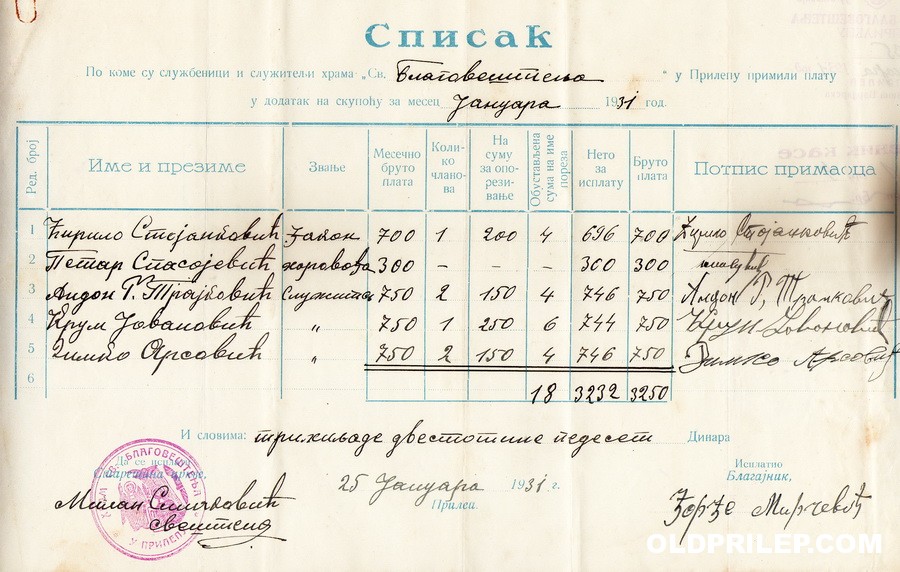 Списак
По коме су службеници и служитељи храма „Св. Благовештење“ у Прилепу примили плату
у додатак на скупоћу за месец Јануара 1931 год.
Ред. број Име и презиме Звање Месечно бруто плата Колико чланова На суму за опорезивање Обустављена сума на име пореза Нето за исплату Бруто плата Потпис примаоца
1 Ћирило Стојанковић Ђакон 700 1 200 4 696 700 Ћирило Стојанковић
2 Петар Спасојевић хоровођа 300 – – – 300 300
3 Андон Р. Трајковић Служитељ 750 2 150 4 746 750 Андон Р. Трајковић
4 Крум Јовановић „ 750 1 250 6 744 750 Крум Јовановић
5 Зимко Арсовић „ 750 2 150 4 746 750 Зимко Арсовић
6 18 3232 3250
И словима: трихиљаде двестотине педесет Динара
Да се исплати
Старешина цркве,
Милан
свештеник
БЛАГОВЕШТЕЊА
У ПРИЛЕПУ
25 Јануара 1931 г.
Прилеп.
Исплатио
Благајник,
Ђорђе Мирчевић
OLDPRILEP.COM